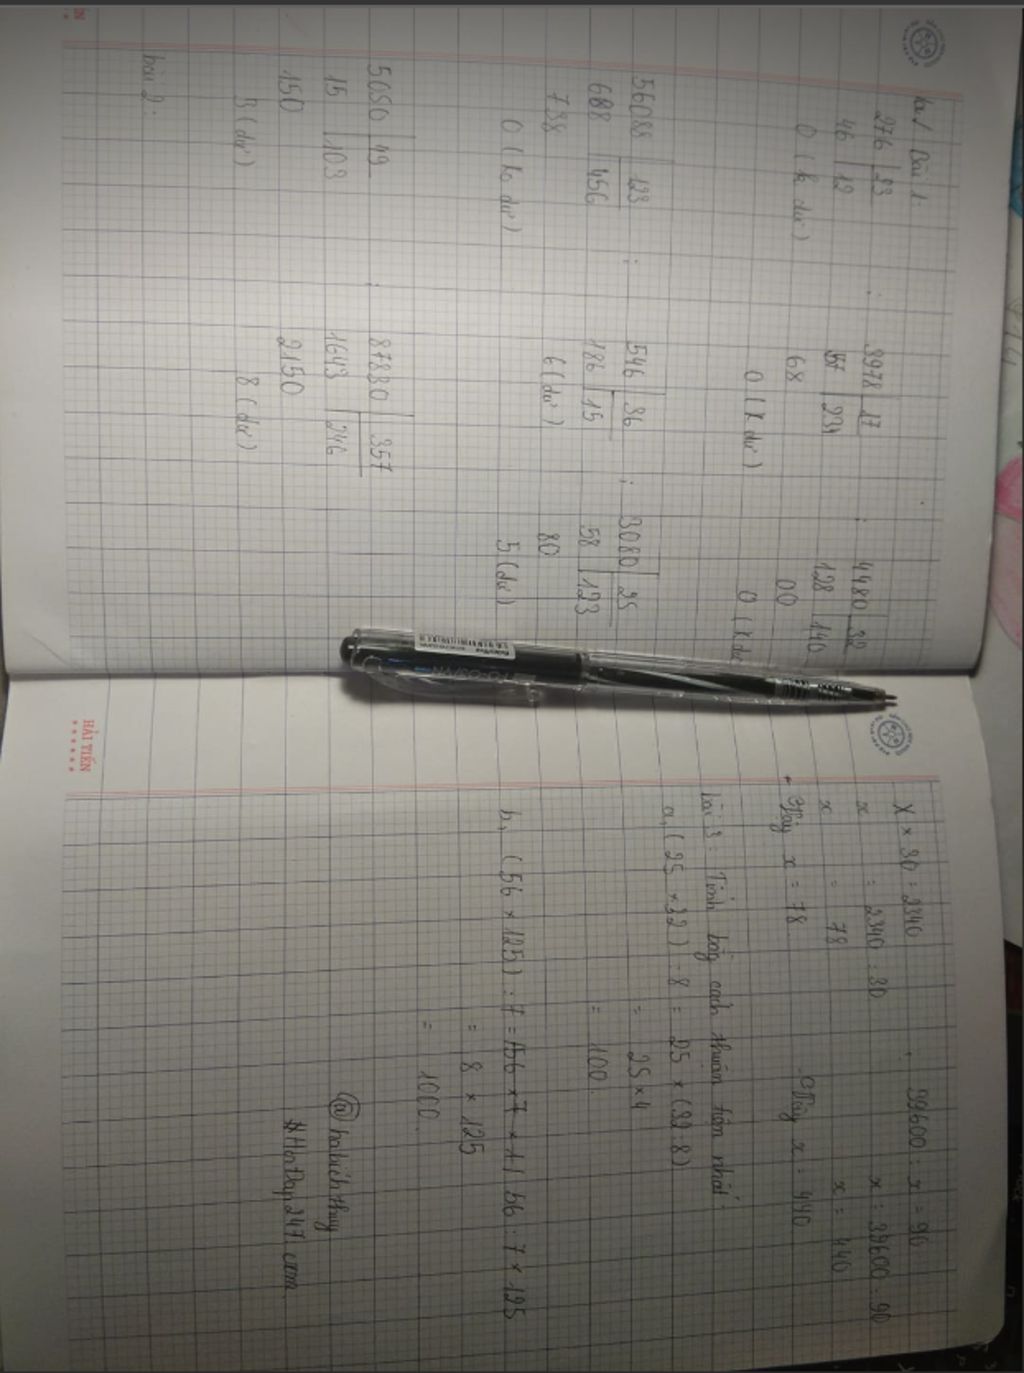 Bài 1.
276 | 23
46 | 12
0 (k dư)
3978 | 17
57 | 234
68
0 (k dư)
4480 | 32
128 | 140
00
0 (k dư
56088 | 123
688 | 456
738
0 (ko dư)
546 | 36
186 | 15
6 (dư)
3080 | 25
58 | 123
80
5 (dư)
5050 | 49
15 | 103
150
3 (dư)
87830 | 357
1643 | 246
2150
8 (dư)
bài 2:
HẢI TIẾN
X × 30 = 2340
x = 2340 : 30
x = 78
Vậy x = 78
39600 : x = 90
x = 39600 : 90
x = 440
Vậy x = 440
bài 3: Tính bằng cách thuận tiện nhất.
a, (25 × 32) : 8 = 25 × (32 : 8)
= 25 × 4
= 100.
b, (56 × 125) : 7 = 56 : 7 × 125
= 8 × 125
= 1000.
@habichthuy
#HoiDap247.com